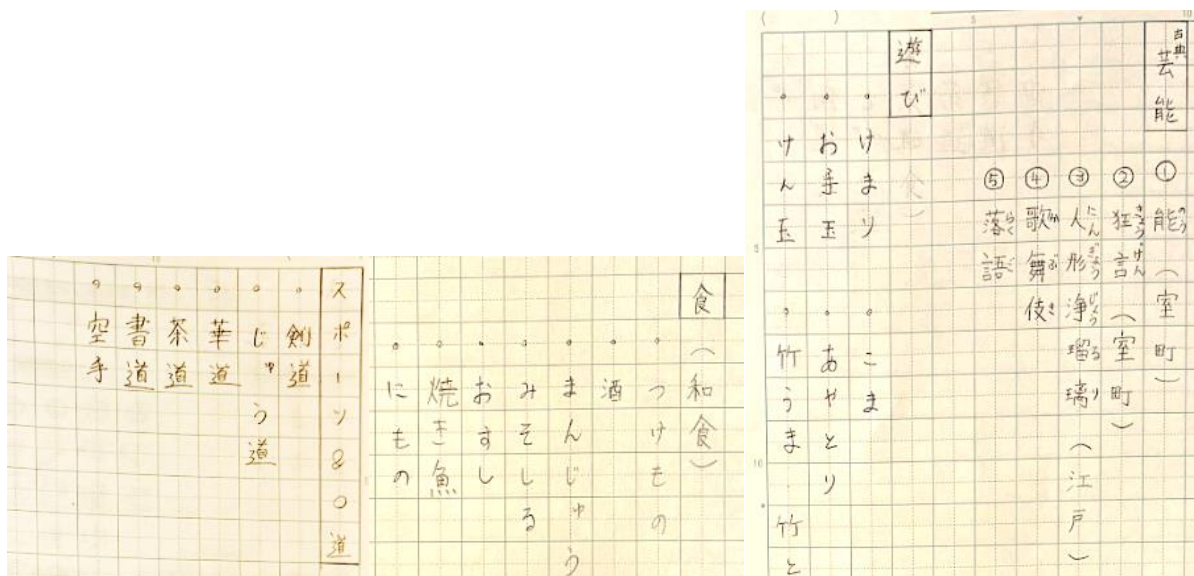 古典芸能
① 能（室町）
② 狂言（室町）
③ 人形浄瑠璃（江戸）
④ 歌舞伎
⑤ 落語
遊び
。けまり 。こま
。お手玉 。あやとり
。けん玉 。竹うま 竹と
食（和食）
。つけもの
。酒
。まんじゅう
。みそしる
。おすし
。焼き魚
。にもの
スポーツ&○道
。剣道
。じゅう道
。華道
。茶道
。書道
。空手